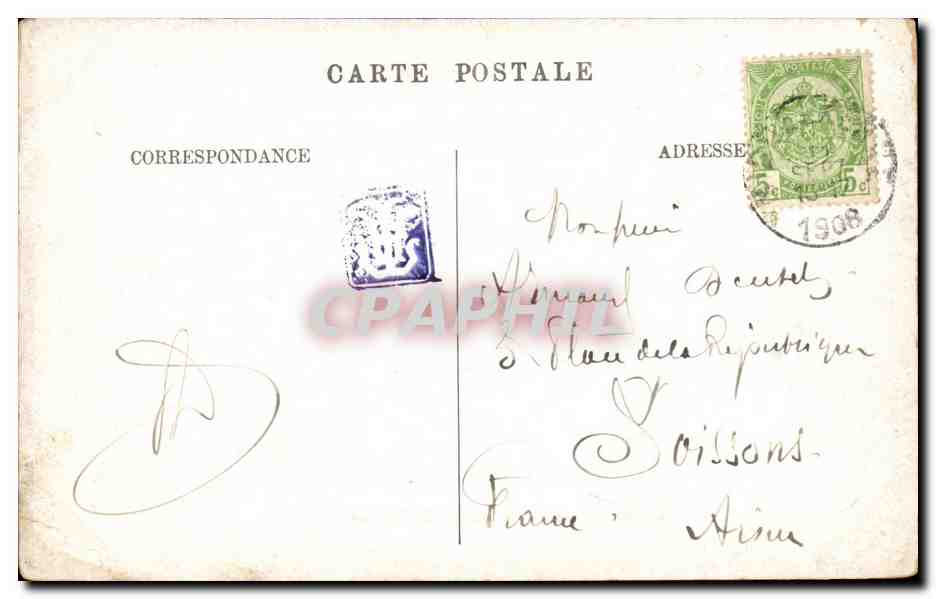 CARTE POSTALE
CORRESPONDANCE
ADRESSE
POSTES
5c 5c
1908
Monsieur
Armand
3 Place de la République
Soissons
France
Aisne
CPAPHIL